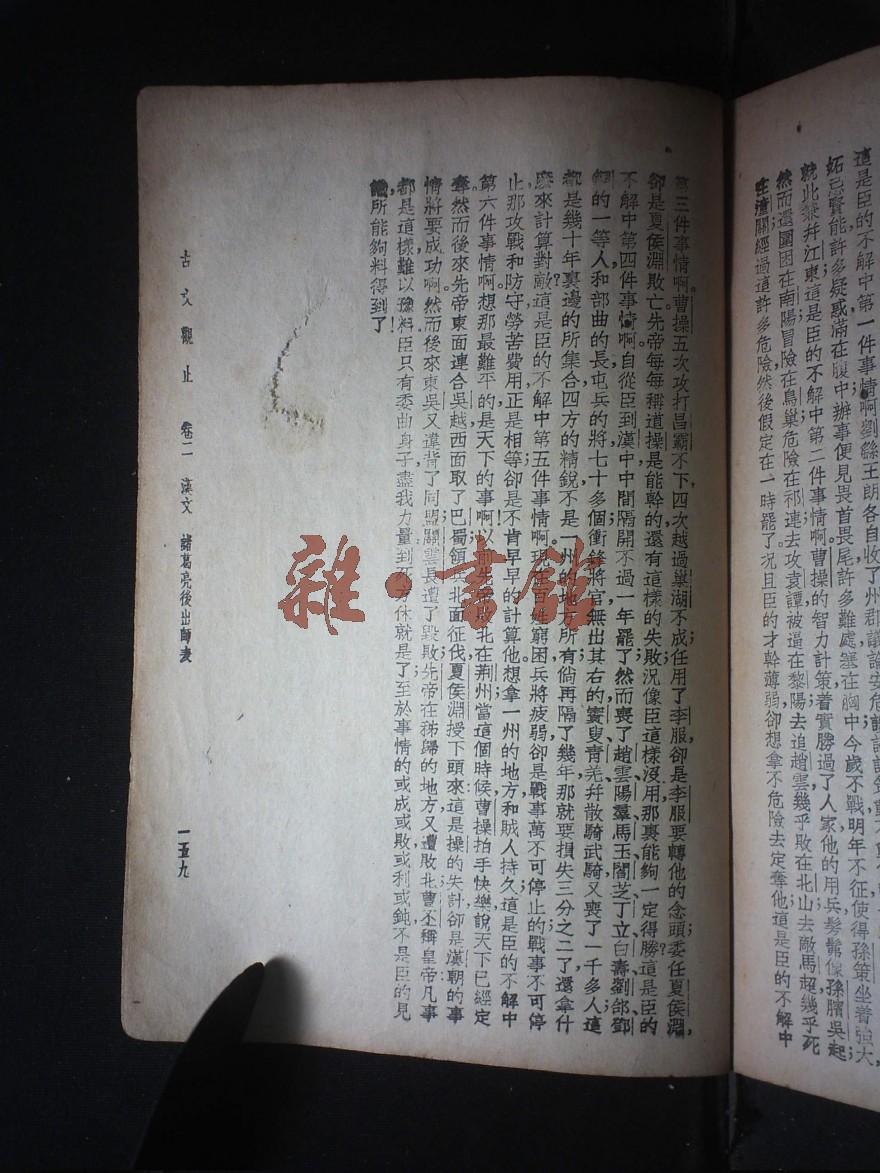 這是臣的不解中第一件事情啊劉繇王朗各自收了州郡議論安危
妬忌賢能許多疑惑滿在腹中辦事便見畏首畏尾許多難處塞在胸中今歲不戰明年不征使得孫策坐着強大,
就此發并江東這是臣的不解中第二件事情啊曹操的智力計策着實勝過了人家他的用兵髣髴像孫臏吳起;
然而還圍困在南陽冒險在烏巢危險在祁連去攻袁譚被逼在黎陽去追趙雲幾乎敗在北山去敵馬超幾乎死
在潼關經過這許多危險然後假定在一時罷了況且臣的才幹薄弱卻想拿不危險去定奪他這是臣的不解中
第三件事情啊。曹操五次攻打昌霸不下四次越過巢湖不成任用了李服卻是李服要轉他的念頭委任夏侯淵,
卻是夏侯淵敗亡先帝每每稱道操是能幹的還有這樣的失敗況像臣這樣沒用那裏能夠一定得勝這是臣的
不解中第四件事情啊自從臣到漢中中間隔開不過一年罷了然而喪了趙雲陽羣馬玉閻芝丁立白壽劉郃鄧
銅的一等人和部曲的長屯兵的將七十多個衝鋒將官無出其右的賨叟青羌并散騎武騎又喪了一千多人這
都是幾十年裏邊的所集合四方的精銳不是一州的地方所有倘再隔了幾年那就要損失三分之二了還拿什
麼來計算對敵這是臣的不解中第五件事情啊現在百姓窮困兵將疲弱卻是戰事萬不可停止的戰事不可停
止那攻戰和防守勞苦費用正是相等卻是不肯早早的計算他想拿一州的地方和賊人持久這是臣的不解中
第六件事情啊想那最難平的是天下的事啊以前先帝敗北在荆州當這個時候曹操拍手快樂說天下已經定
奪然而後來先帝東面連合吳越西面取了巴蜀領兵北面征伐夏侯淵授下頭來這是操的失計卻是漢朝的事
情將要成功啊然而後來東吳又違背了同盟關雲長遭了毀敗先帝在秭歸的地方又遭敗北曹丕稱皇帝凡事
都是這樣難以豫料臣只有委曲身子盡我力量到死方休就是了至於事情的或成或敗或利或鈍不是臣的見
識所能夠料得到了!
古文觀止 卷二 漢文 諸葛亮後出師表
一五九
雜·書館